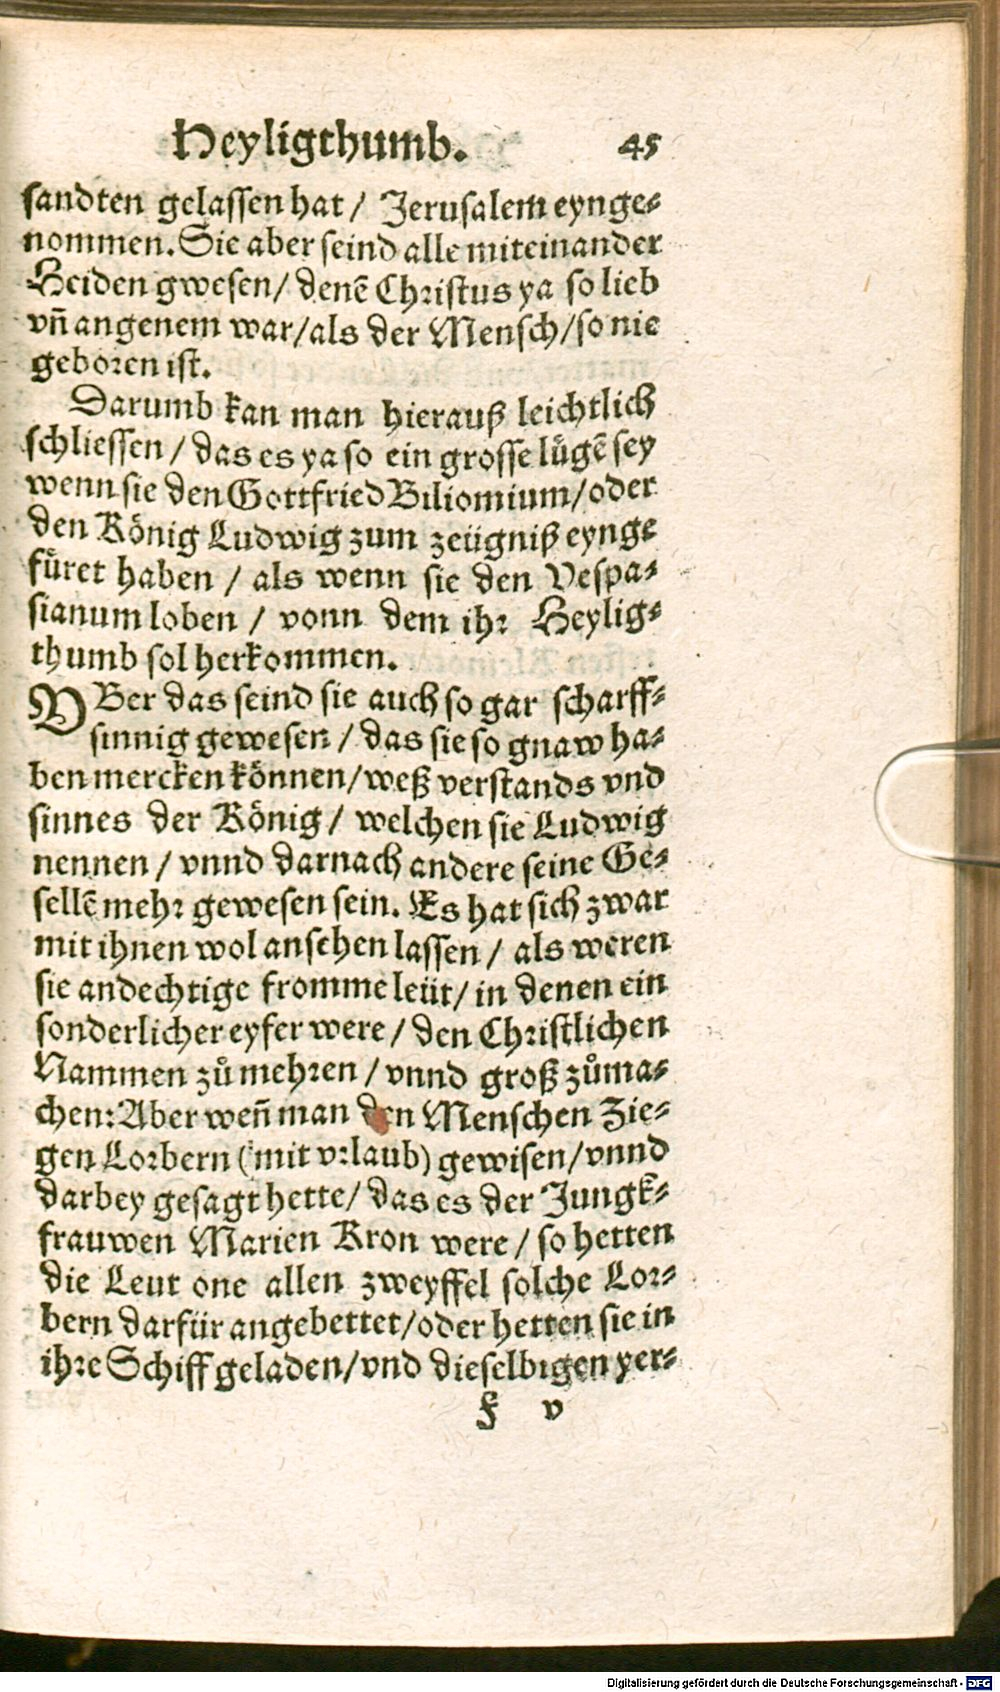 Heyligthumb. 45
sandten gelassen hat / Jerusalem eynge⸗
nommen. Sie aber seind alle miteinander
Heiden gwesen / denẽ Christus ya so lieb
vñ angenem war / als der Mensch / so nie
geboren ist.
Darumb kan man hierauß leichtlich
schliessen / das es ya so ein grosse lůgẽ sey
wenn sie den Gottfried Biliomium / oder
den König Ludwig zum zeügniß eynge
fůret haben / als wenn sie den Vespa⸗
sianum loben / vonn dem ihr Heylig⸗
thumb sol herkommen.
VBer das seind sie auch so gar scharff⸗
sinnig gewesen / das sie so gnaw ha⸗
ben mercken können / weß verstands vnd
sinnes der König / welchen sie Ludwig
nennen / vnnd darnach andere seine Ge⸗
sellẽ mehr gewesen sein. Es hat sich zwar
mit ihnen wol ansehen lassen / als weren
sie andechtige fromme leüt / in denen ein
sonderlicher eyfer were / den Christlichen
Nammen zů mehren / vnnd groß zůma⸗
chen: Aber weñ man den Menschen Zie⸗
gen Lorbern (mit vrlaub) gewisen / vnnd
darbey gesagt hette / das es der Jungk⸗
frauwen Marien Kron were / so hetten
die Leut one allen zweyffel solche Lor⸗
bern darfür angebettet / oder hetten sie in
ihre Schiff geladen / vnd dieselbigen yer⸗
F v
Digitalisierung gefördert durch die Deutsche Forschungsgemeinschaft - DFG